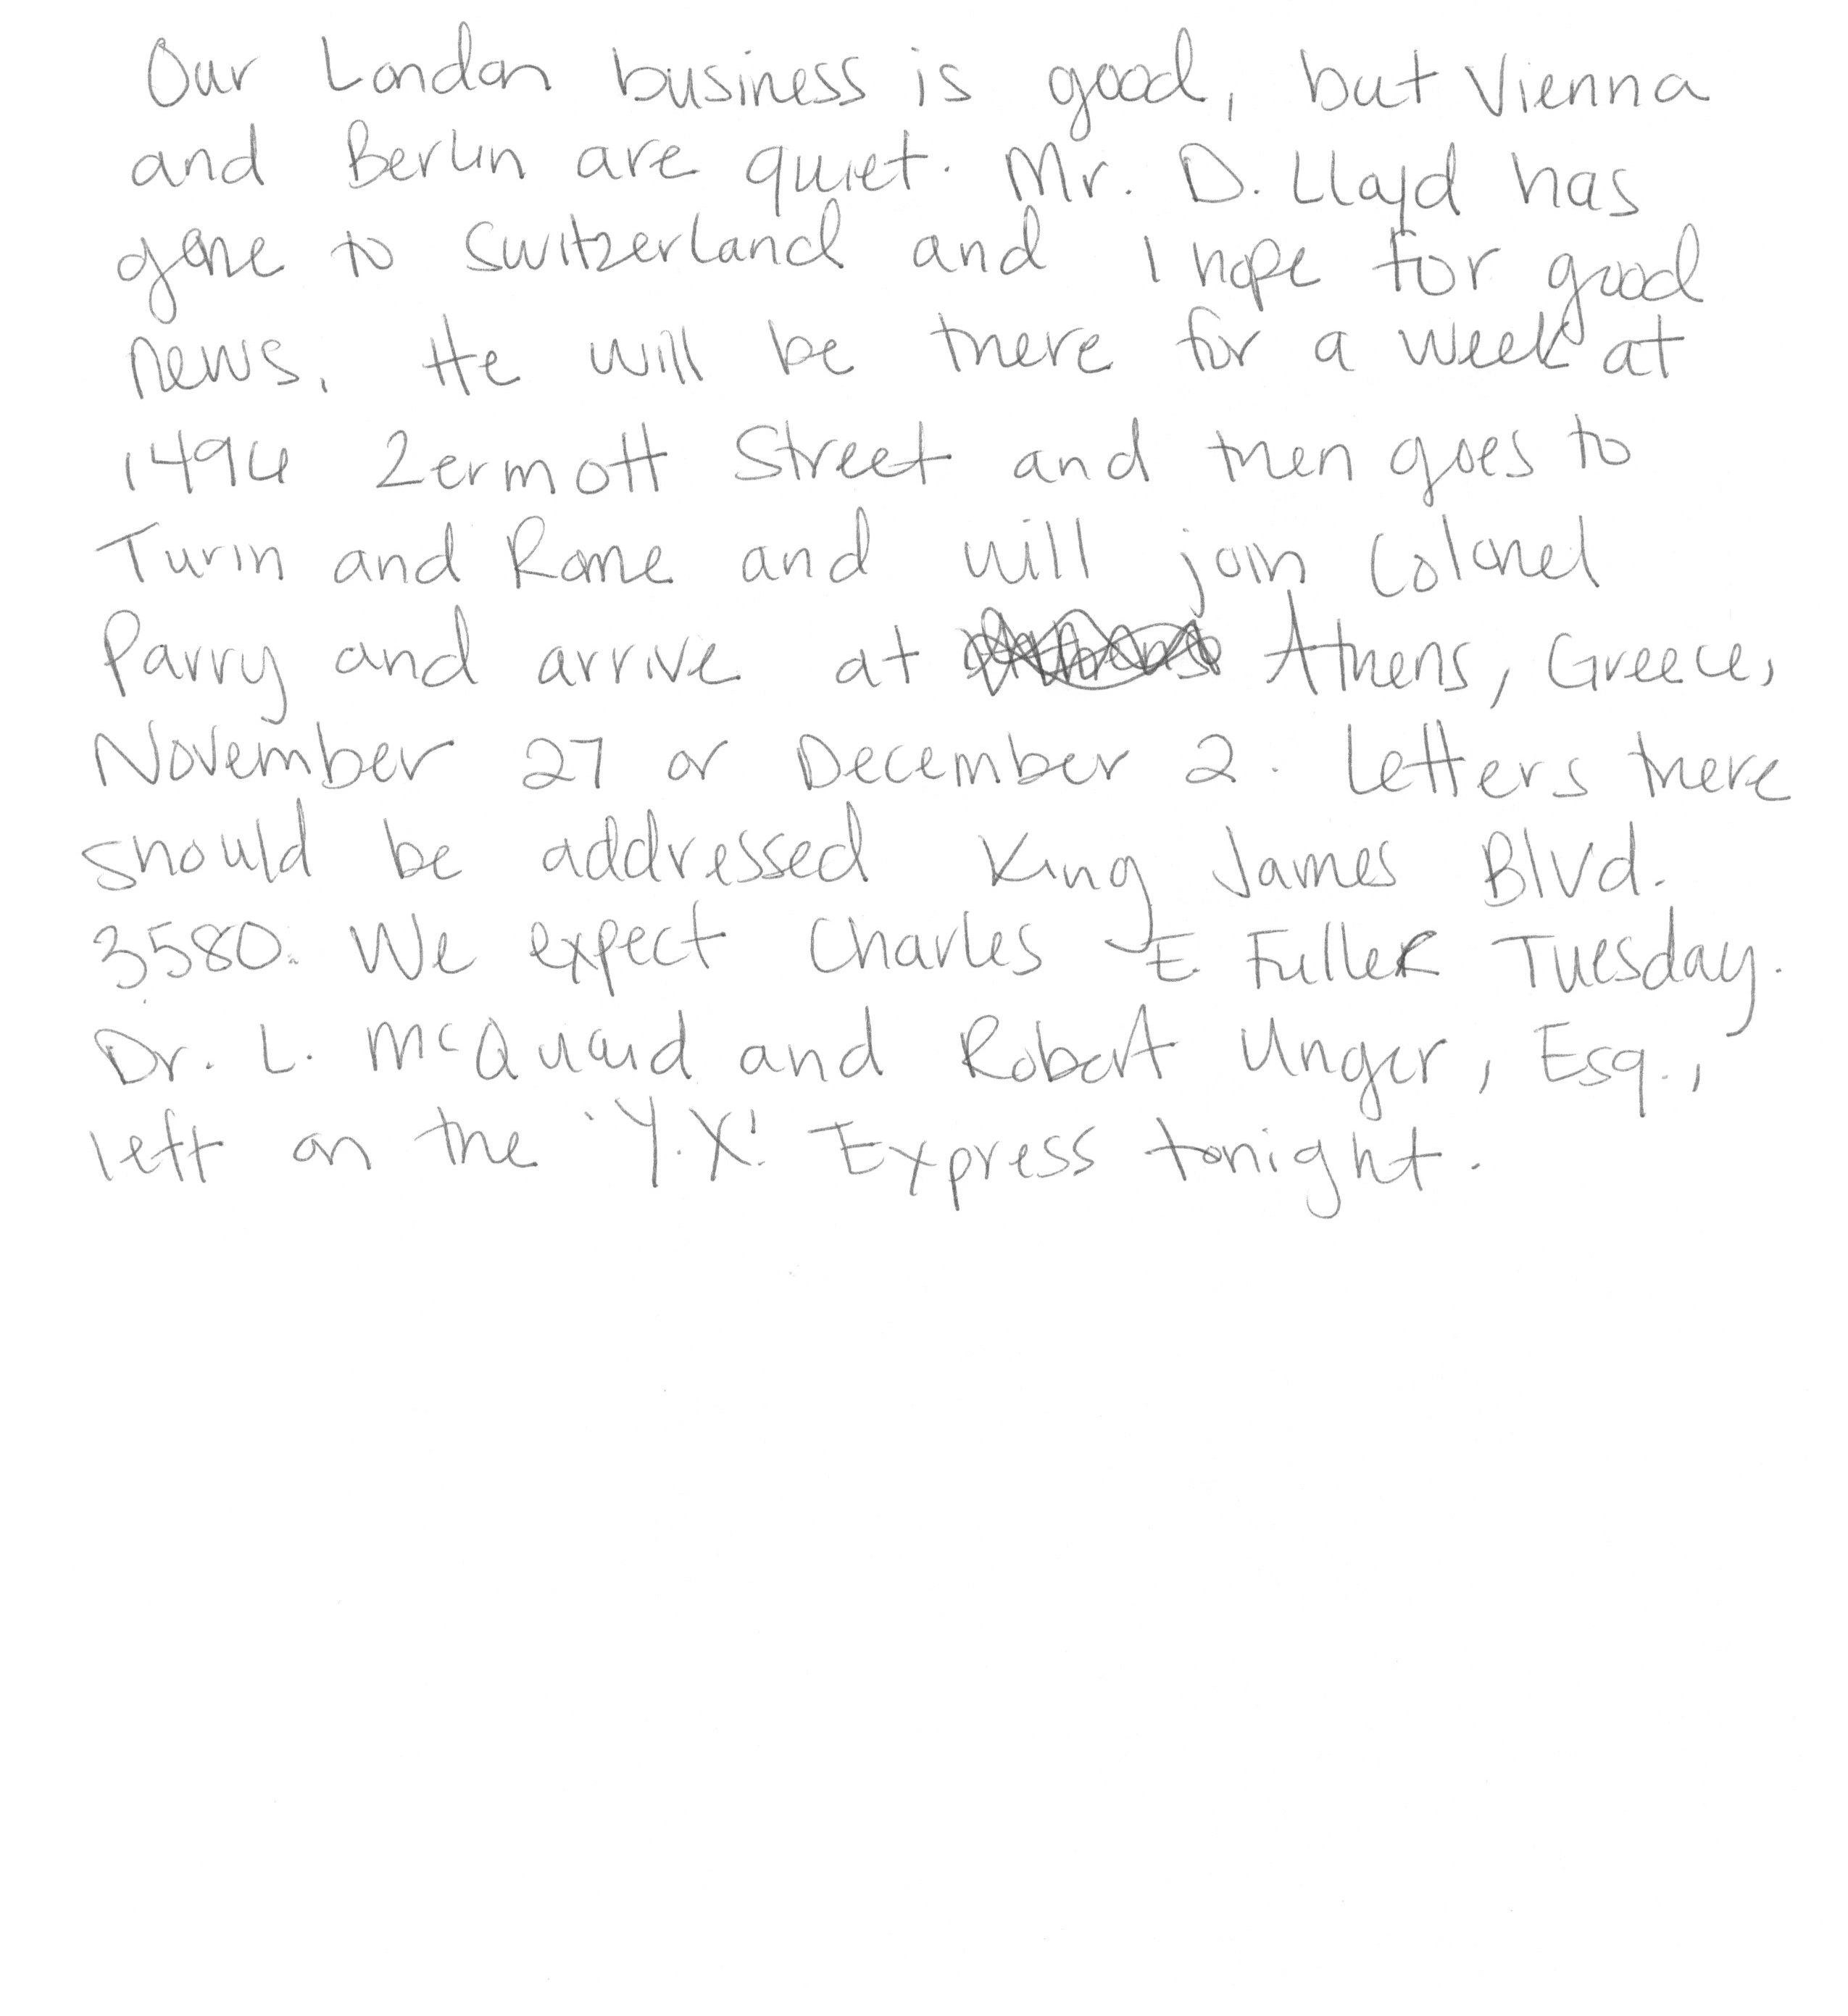 Our London business is good, but Vienna
and Berlin are quiet. Mr. D. Lloyd has
gone to Switzerland and I hope for good
news. He will be there for a week at
1496 Zermott Street and then goes to
Turin and Rome and will join Colonel
Parry and arrive at Athens, Greece,
November 27 or December 2. Letters there
should be addressed King James Blvd.
3580. We expect Charles E. Fuller Tuesday.
Dr. L. McQuaid and Robert Unger, Esq.,
left on the 'Y.X.' Express tonight.